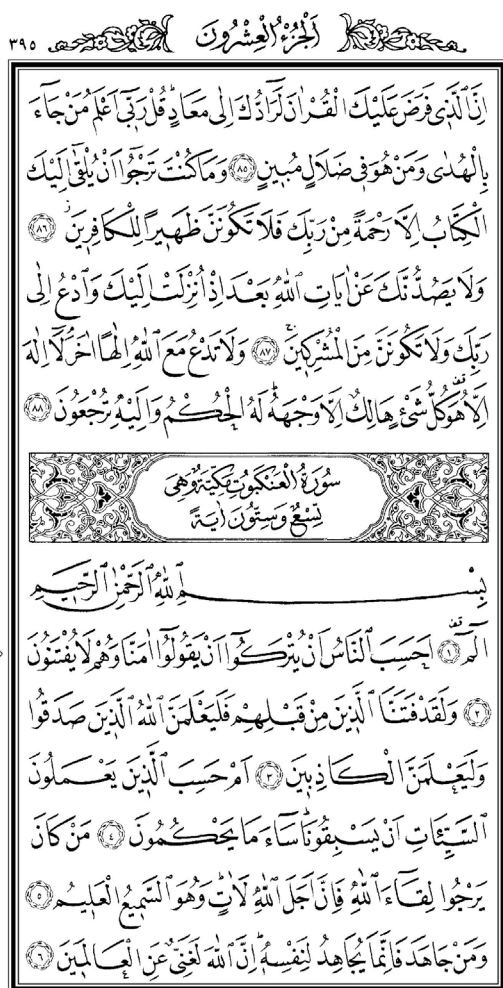 اَلْجُزْءُ الْعِشْرُونَ
٣٩٥
اِنَّ الَّذٖي فَرَضَ عَلَيْكَ الْقُرْاٰنَ لَرَٓادُّكَ اِلٰى مَعَادٍؕ قُلْ رَبّٖٓي اَعْلَمُ مَنْ جَٓاءَ
بِالْهُدٰى وَمَنْ هُوَ فٖي ضَلَالٍ مُبٖينٍ ﴿٨٥﴾ وَمَا كُنْتَ تَرْجُٓوا اَنْ يُلْقٰٓى اِلَيْكَ
الْكِتَابُ اِلَّا رَحْمَةً مِنْ رَبِّكَ فَلَا تَكُونَنَّ ظَهٖيرًا لِلْكَافِرٖينَؗ ﴿٨٦﴾
وَلَا يَصُدُّنَّكَ عَنْ اٰيَاتِ اللّٰهِ بَعْدَ اِذْ اُنْزِلَتْ اِلَيْكَ وَادْعُ اِلٰى
رَبِّكَ وَلَا تَكُونَنَّ مِنَ الْمُشْرِكٖينَۚ ﴿٨٧﴾ وَلَا تَدْعُ مَعَ اللّٰهِ اِلٰهًا اٰخَرَۘ لَٓا اِلٰهَ
اِلَّا هُوَ۠ كُلُّ شَيْءٍ هَالِكٌ اِلَّا وَجْهَهُؕ لَهُ الْحُكْمُ وَاِلَيْهِ تُرْجَعُونَ ﴿٨٨﴾
سُورَةُ الْعَنْكَبُوتِ مَكِّيَّةٌ وَهِيَ
تِسْعٌ وَسِتُّونَ اٰيَةً
بِسْمِ اللّٰهِ الرَّحْمٰنِ الرَّحٖيمِ
الٓمٓۚ ﴿١﴾ اَحَسِبَ النَّاسُ اَنْ يُتْرَكُٓوا اَنْ يَقُولُٓوا اٰمَنَّا وَهُمْ لَا يُفْتَنُونَ
﴿٢﴾ وَلَقَدْ فَتَنَّا الَّذٖينَ مِنْ قَبْلِهِمْ فَلَيَعْلَمَنَّ اللّٰهُ الَّذٖينَ صَدَقُوا
وَلَيَعْلَمَنَّ الْكَاذِبٖينَ ﴿٣﴾ اَمْ حَسِبَ الَّذٖينَ يَعْمَلُونَ
السَّيِّـَٔاتِ اَنْ يَسْبِقُونَاؕ سَٓاءَ مَا يَحْكُمُونَ ﴿٤﴾ مَنْ كَانَ
يَرْجُوا لِقَٓاءَ اللّٰهِ فَاِنَّ اَجَلَ اللّٰهِ لَاٰتٍؕ وَهُوَ السَّمٖيعُ الْعَلٖيمُ ﴿٥﴾
وَمَنْ جَاهَدَ فَاِنَّمَا يُجَاهِدُ لِنَفْسِهٖؕ اِنَّ اللّٰهَ لَغَنِيٌّ عَنِ الْعَالَمٖينَ ﴿٦﴾